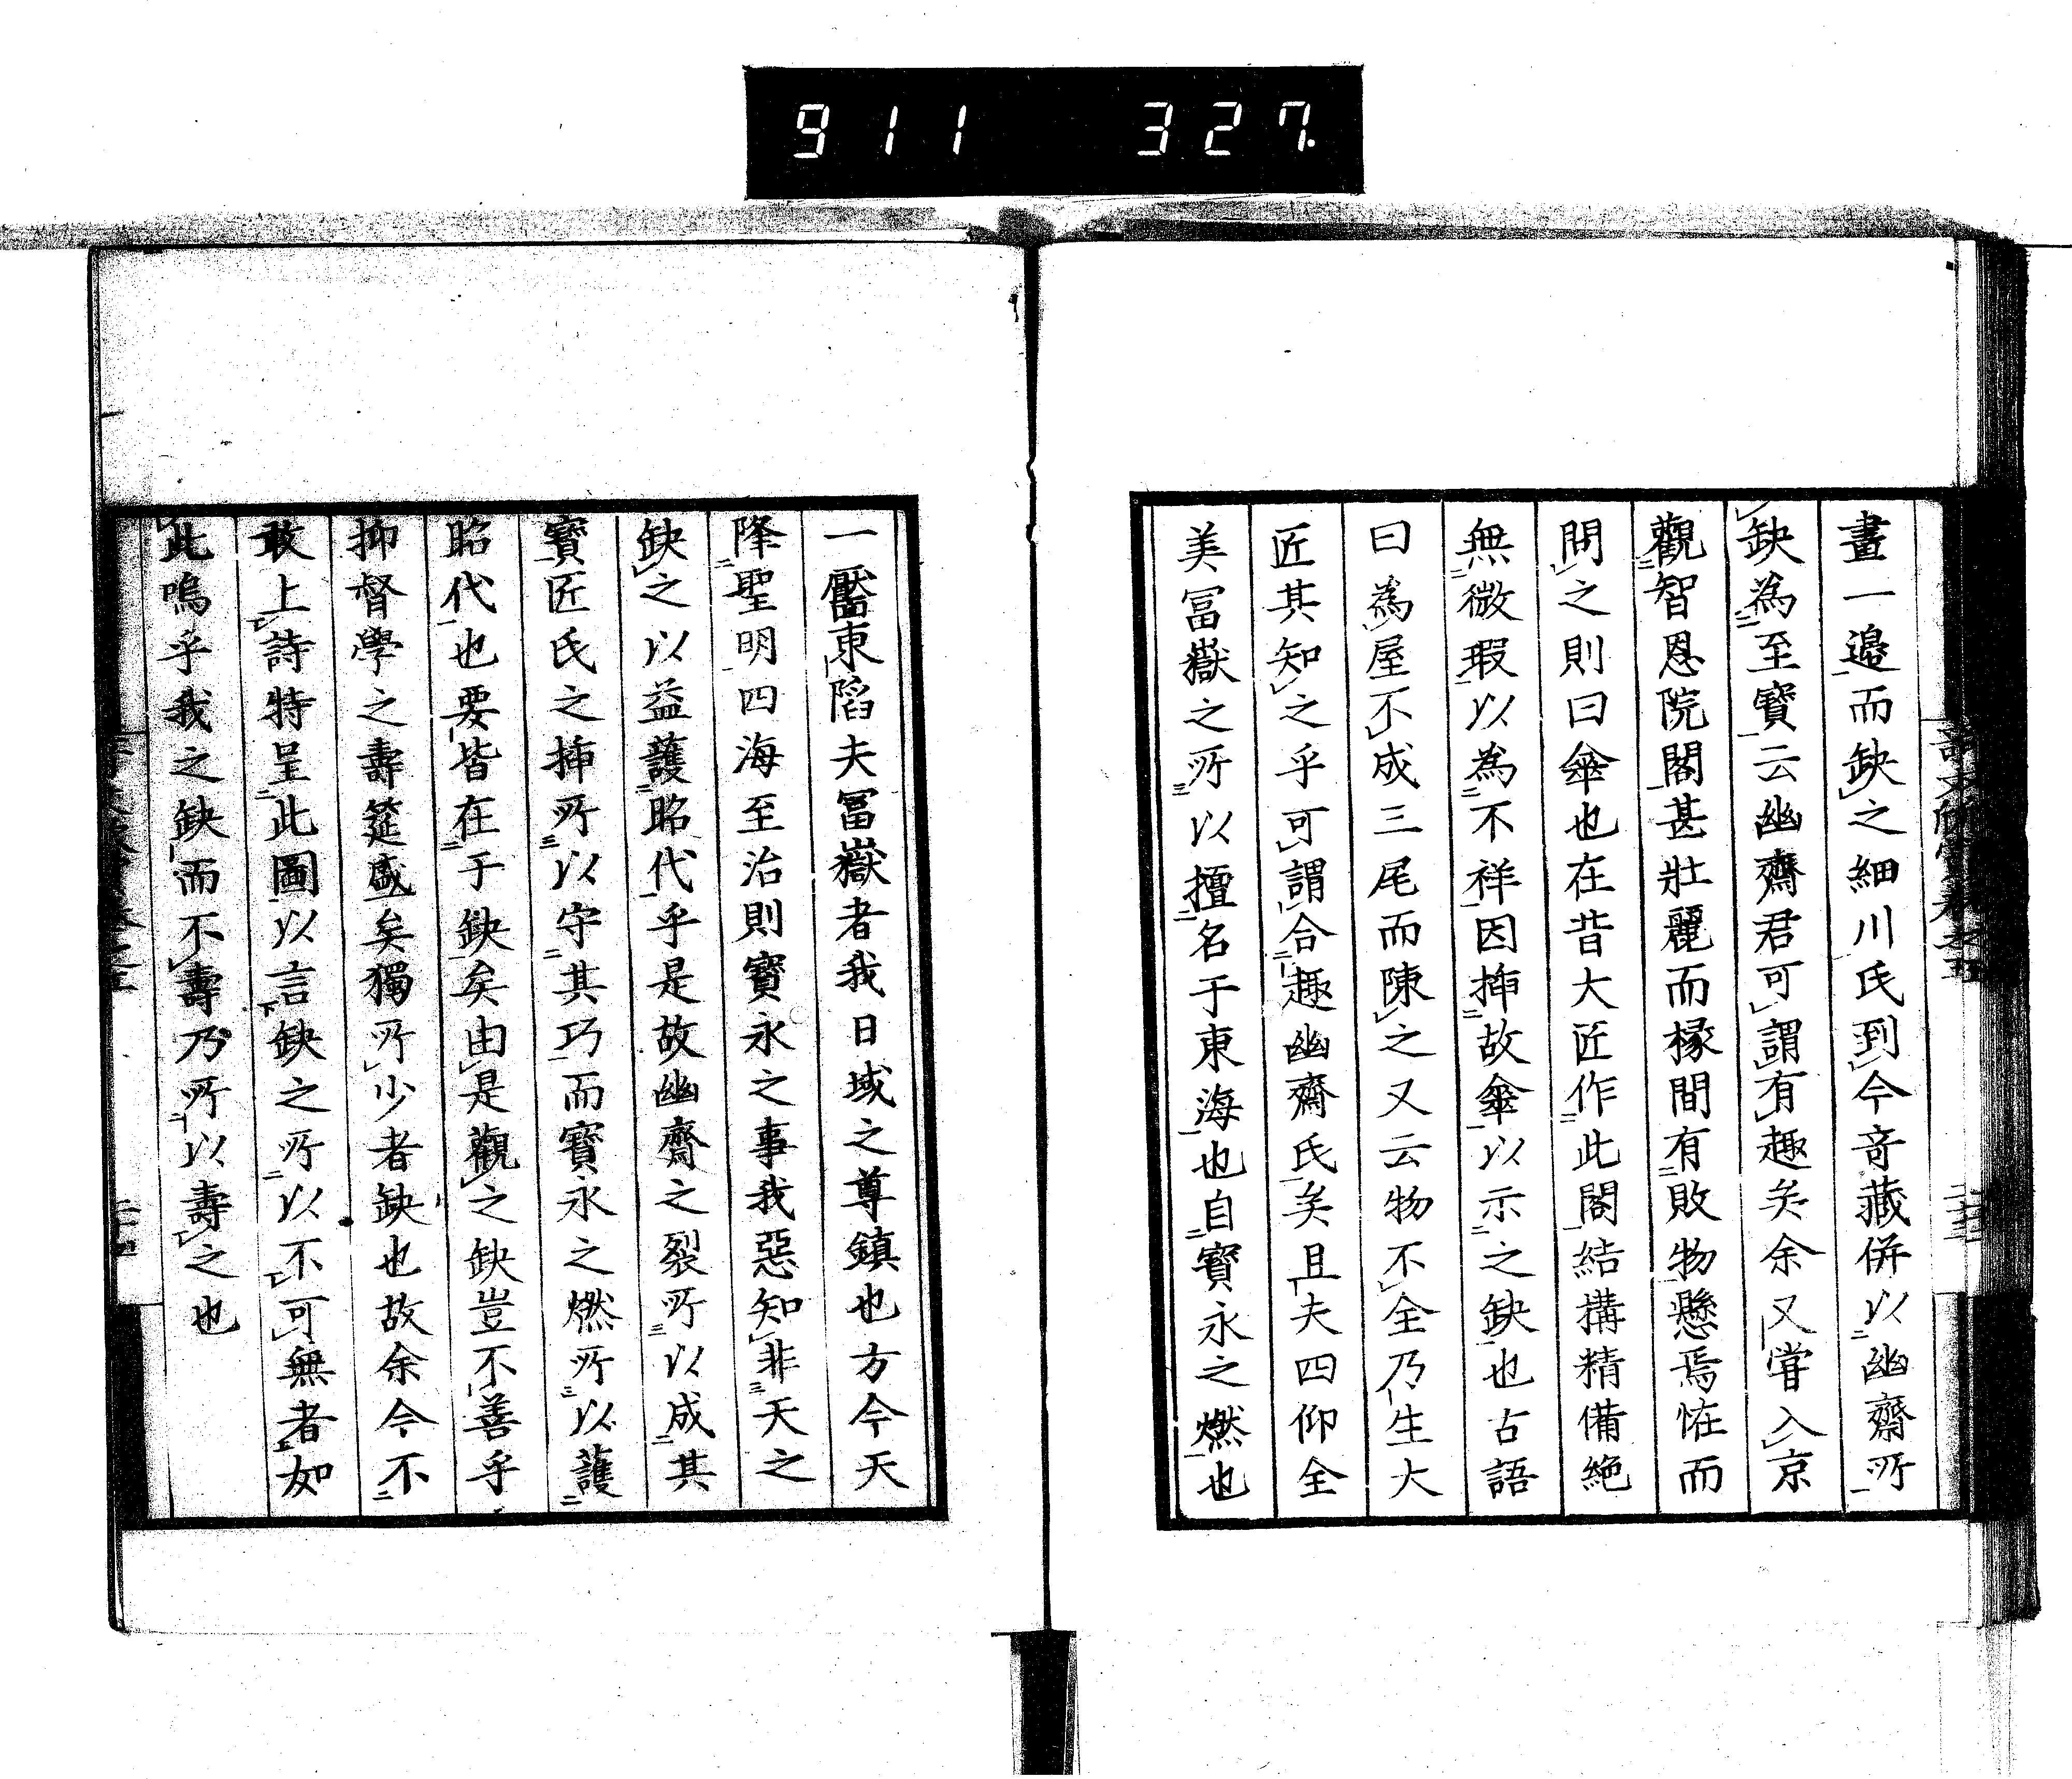 911 327.
畫一邉而缺之細川氏到今竒藏併以幽齋所
缺為至寶云幽齋君可謂有趣矣余又嘗入京
觀智恩院閣甚壯麗而椽間有敗物懸焉恠而
問之則曰傘也在昔大匠作此閣結搆精備絶
無微瑕以為不祥因揷故傘以示之缺也古語
曰為屋不成三尾而陳之又云物不全乃生大
匠其知之乎可謂合趣幽齋氏矣且夫四仰全
美冨嶽之所以擅名于東海也自寶永之燃也
一壓東陷夫冨嶽者我日域之尊鎮也方今天
隆聖明四海至治則寶永之事我惡知非天之
缺之以益護昭代乎是故幽齋之裂所以成其
寳匠氏之揷所以守其巧而寶永之燃所以護
昭代也要皆在于缺矣由是觀之缺豈不善乎
抑督學之壽筵盛矣獨所少者缺也故余今不
敢上詩特呈此圖以言缺之所以不可無者如
此嗚乎我之缺而不壽乃所以壽之也